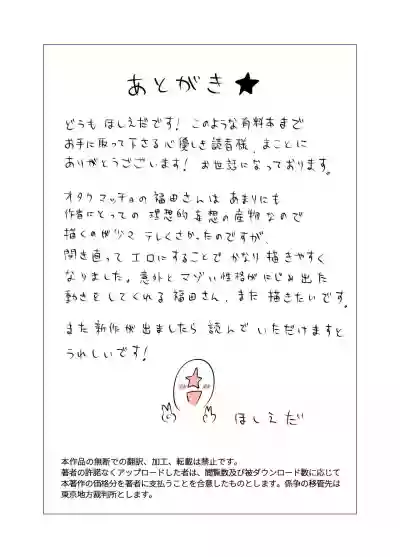 あとがき★
どうも ほしえだです! このような有料本まで
お手に取って下さる心優しき読者様、まことに
ありがとうございます! お世話になっております。
オタクマッチョの福田さんは あまりにも
作者にとっての 理想的妄想の産物なので
描くのが少々 テレくさかったのですが、
開き直って エロにすることで かなり描きやすく
なりました。意外と マゾい性格がにじみ出た
動きをしてくれる 福田さん、また 描きたいです。
また 新作が 出ましたら 読んで いただけますと
うれしいです!
ほしえだ
本作品の無断での翻訳、加工、転載は禁止です。
著者の許諾なくアップロードした者は、閲覧数及び被ダウンロード数に応じて
本著作の価格分を著者に支払うことを合意したものとします。係争の移管先は
東京地方裁判所とします。